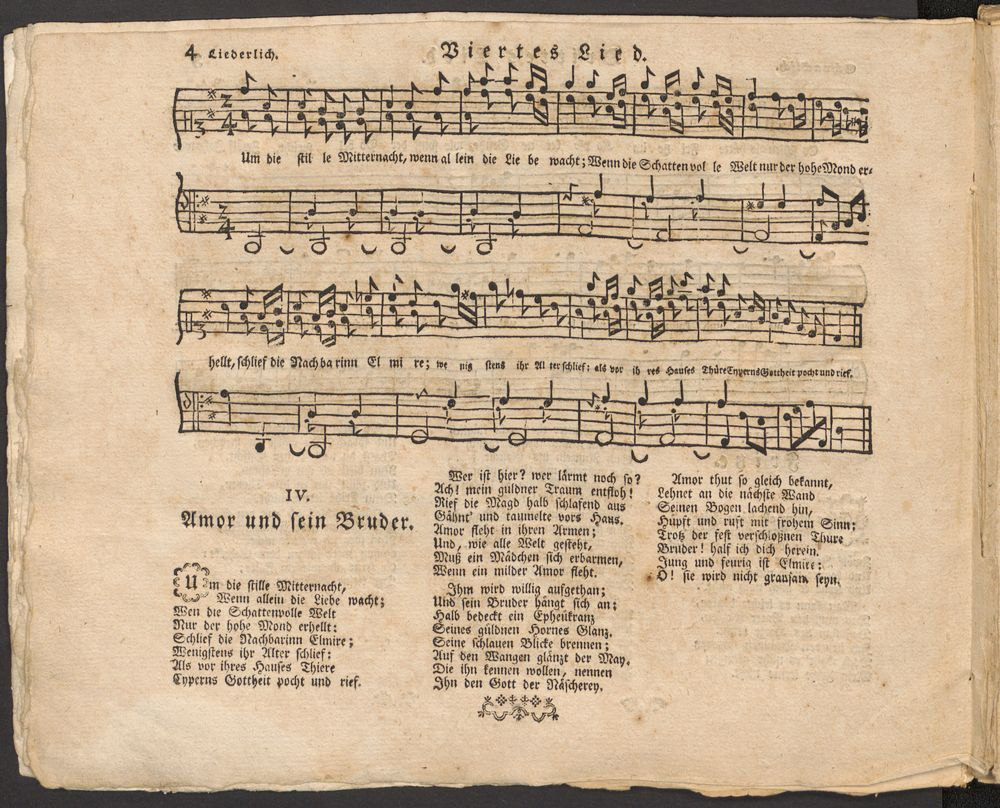 4 Liederlich. Viertes Lied.
Um die stil le Mitternacht, wenn al lein die Lie be wacht; Wenn die Schatten vol le Welt nur der hohe Mond er-
hellt, schlief die Nach ba rinn El mi re; we nig stens ihr Al ter schlief; als vor ih res Hauses Thüre Cyperns Gottheit pocht und rief.
IV.
Amor und sein Bruder.
Um die stille Mitternacht,
Wenn allein die Liebe wacht;
Wen die Schattenvolle Welt
Nur der hohe Mond erhellt:
Schlief die Nachbarinn Elmire;
Wenigstens ihr Alter schlief:
Als vor ihres Hauses Thiere
Cyperns Gottheit pocht und rief.
Wer ist hier? wer lärmt noch so?
Ach! mein güldner Traum entfloh!
Rief die Magd halb schlafend aus
Gähnt' und taumelte vors Haus.
Amor fleht in ihren Armen;
Und, wie alle Welt gesteht,
Muß ein Mädchen sich erbarmen,
Wenn ein milder Amor fleht.
Ihm wird willig aufgethan;
Und sein Bruder hängt sich an;
Halb bedeckt ein Epheukranz
Seines güldnen Hornes Glanz.
Seine schlauen Blicke brennen;
Auf den Wangen glänzt der May.
Die ihn kennen wollen, nennen
Ihn den Gott der Näscherey.
Amor thut so gleich bekannt,
Lehnet an die nächste Wand
Seinen Bogen lachend hin,
Hüpft und ruft mit frohem Sinn;
Trotz der fest verschloßnen Thure
Bruder! half ich dich herein.
Jung und feurig ist Elmire:
O! sie wird nicht grausam seyn.